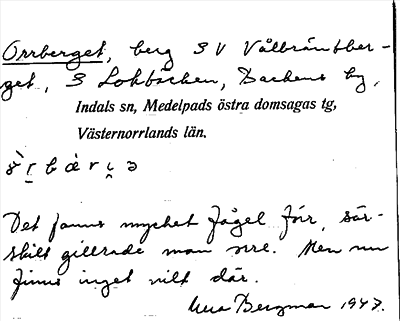 Orrberget, berg S V Vålbräntber-
get, S Lokbäcken, Backens by,
Indals sn, Medelpads östra domsagas tg,
Västernorrlands län.
Det fanns mycket fågel förr, sär-
skilt gillrade man orre. Men nu
finns inget vilt där.
Bergman 1947.